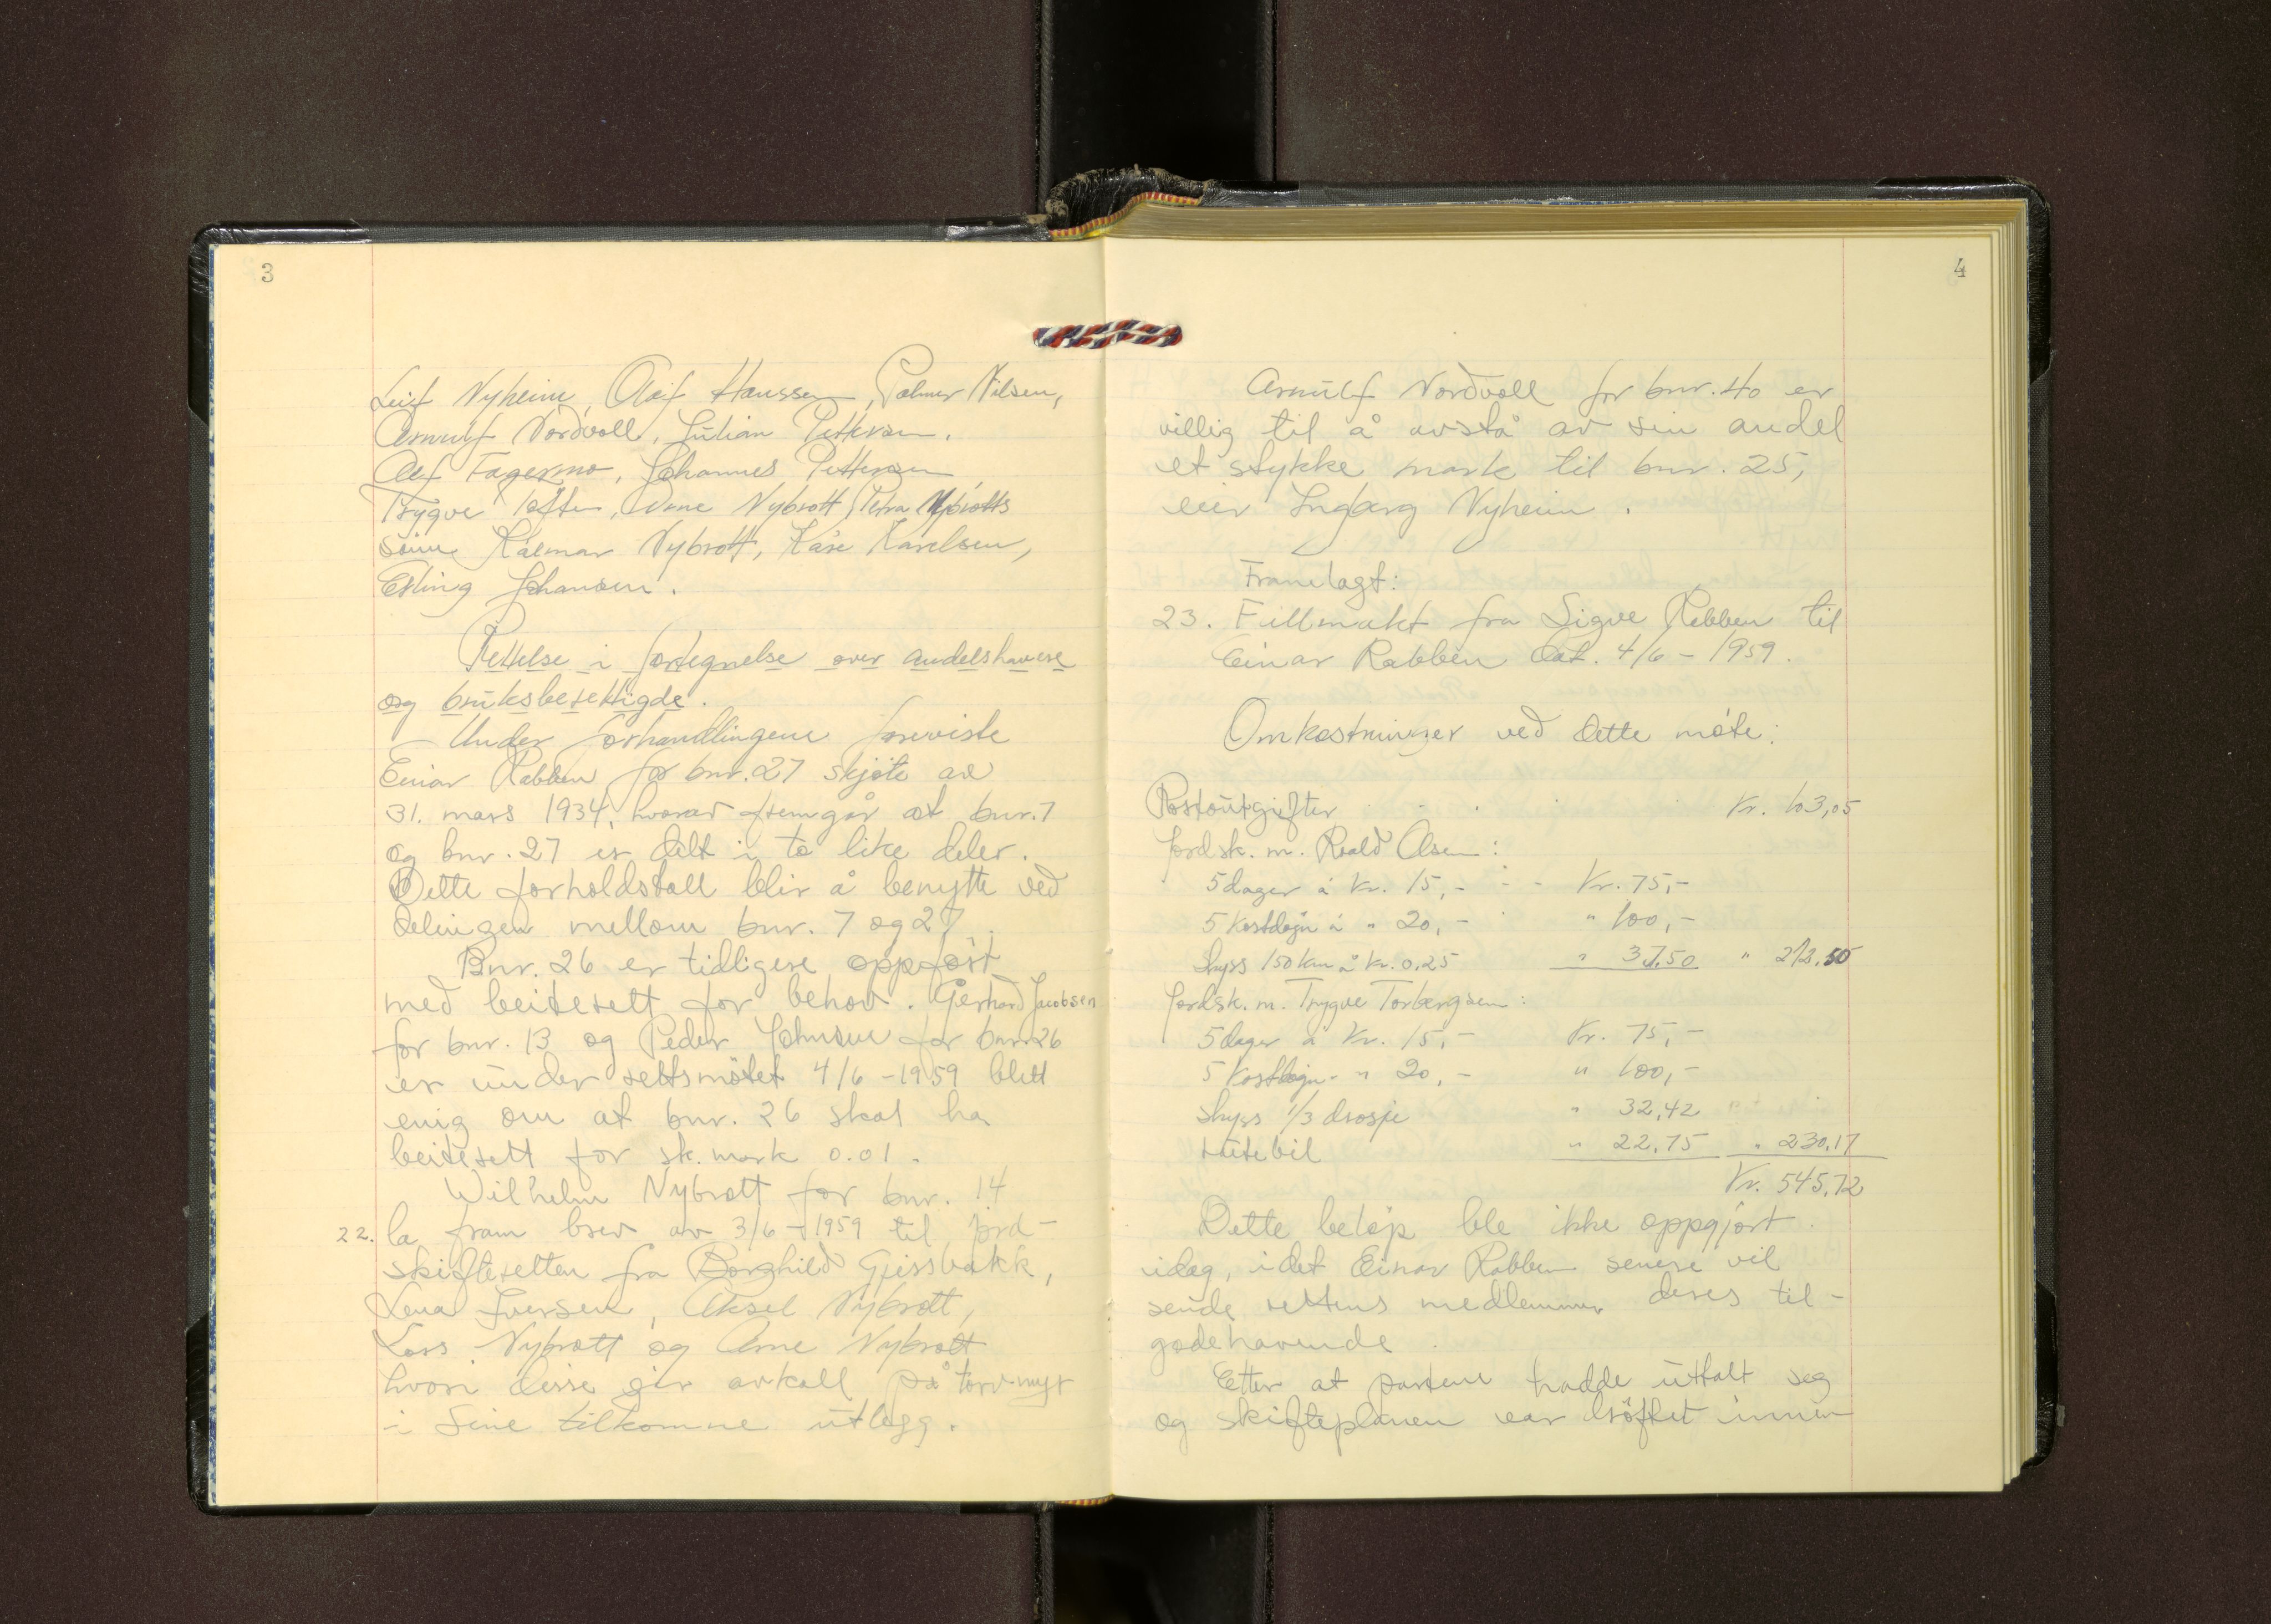 3
Leif Nyheim, Olaf Hanssen, Palmer Nilsen,
Arnulf Nordvoll, Julian Pettersen.
Alf Fagermo, Johannes Pettersen
Trygve Toften, Arne Nybrott, Petra Nybrotts
sønn Kalmar Nybrott, Kåre Karelsen,
Erling Johansen.
Rettelse i fortegnelse over andelshavere
og bruksberettigde.
Under forhandlingene foreviste
Einar Rabben for bnr. 27 skjøte av
31. mars 1934, hvorav fremgår at bnr. 7
og bnr. 27 er delt i to like deler.
Dette forholdstall blir å benytte ved
delingen mellom bnr. 7 og 27.
Bnr. 26 er tidligere oppført
med beiterett for behov. Gerhard Jacobsen
for bnr. 13 og Peder Johnsen for bnr. 26
er under rettsmøtet 4/6-1959 blitt
enig om at bnr. 26 skal ha
beiterett for sk. mark 0.01.
Wilhelm Nybrott for bnr. 14
22. la fram brev av 3/6-1959 til jord-
skifteretten fra Borghild Gjessbakk,
Lena Iversen, Aksel Nybrott,
Lars Nybrott og Arne Nybrott
hvori disse gir avkall på torvmyr
i sine tilkomne utlegg.
4
Arnulf Nordvoll for bnr. 40 er
villig til å avstå av sin andel
et stykke mark til bnr. 25,
eier Ingbørg Nyheim.
Framlagt:
23. Fullmakt fra Sigve Rabben til
Einar Rabben dat. 4/6-1959.
Omkostninger ved dette møte:
Postoutgifter Kr. 103,05
Jordsk. m. Roald Olsen:
5 dager á Kr. 15,- Kr. 75,-
5 Kostdøgn á " 20,- " 100,-
Skyss 150 km á Kr. 0.25 " 37.50 " 212.50
Jordsk. m. Trygve Torbergsen:
5 dager á Kr. 15,- Kr. 75,-
5 Kostdøgn - " 20,- " 100,-
Skyss 1/3 drosje " 32,42
rutebil " 22,75 " 230,17
Kr. 545,72
Dette beløp ble ikke oppgjort
idag, idet Einar Rabben senere vil
sende rettens medlemmer deres til-
godehavende.
Etter at partene hadde uttalt seg
og skifteplanen var drøftet innen